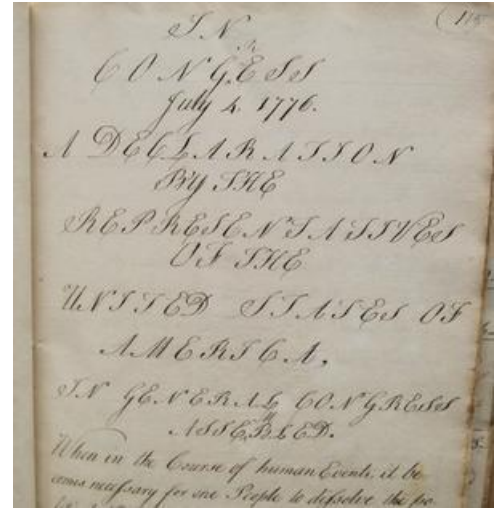 (115
IN
CONGRESS
July 4. 1776.
A DECLARATION
BY THE
REPRESENTATIVES
OF THE
UNITED STATES OF
AMERICA,
IN GENERAL CONGRESS
ASSEMBLED.
When in the Course of human Events, it be
comes necessary for one People to dissolve the po